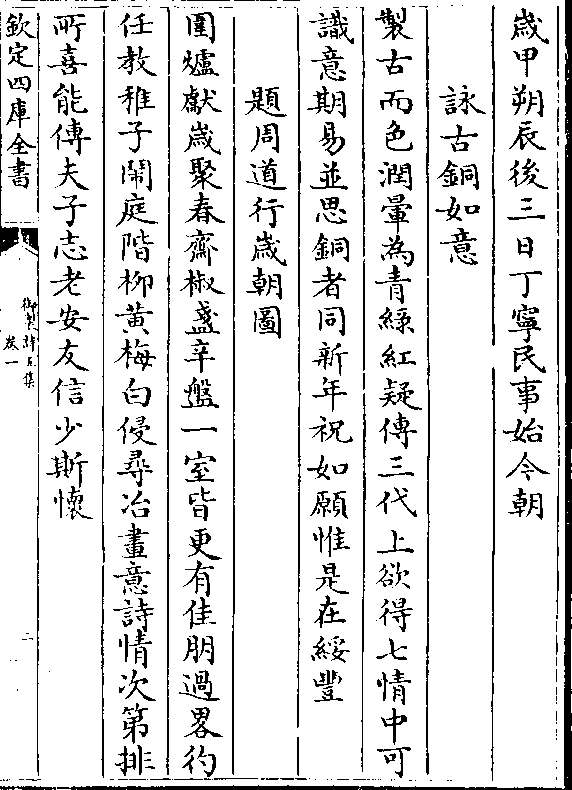 歲甲朔辰後三日丁寧民事始今朝
詠古銅如意
製古而色潤暈為青綠紅疑傳三代上欲得七情中可
識意期易並思銅者同新年祝如願惟是在綏豐
題周道行歲朝圖
圍爐獻歲聚春齋椒盞辛盤一室皆更有佳朋過畧彴
任教稚子鬧庭階柳黃梅白侵尋冶畫意詩情次第排
所喜能傳夫子志老安友信少斯懷
欽定四庫全書
御製詩五集
卷一
二